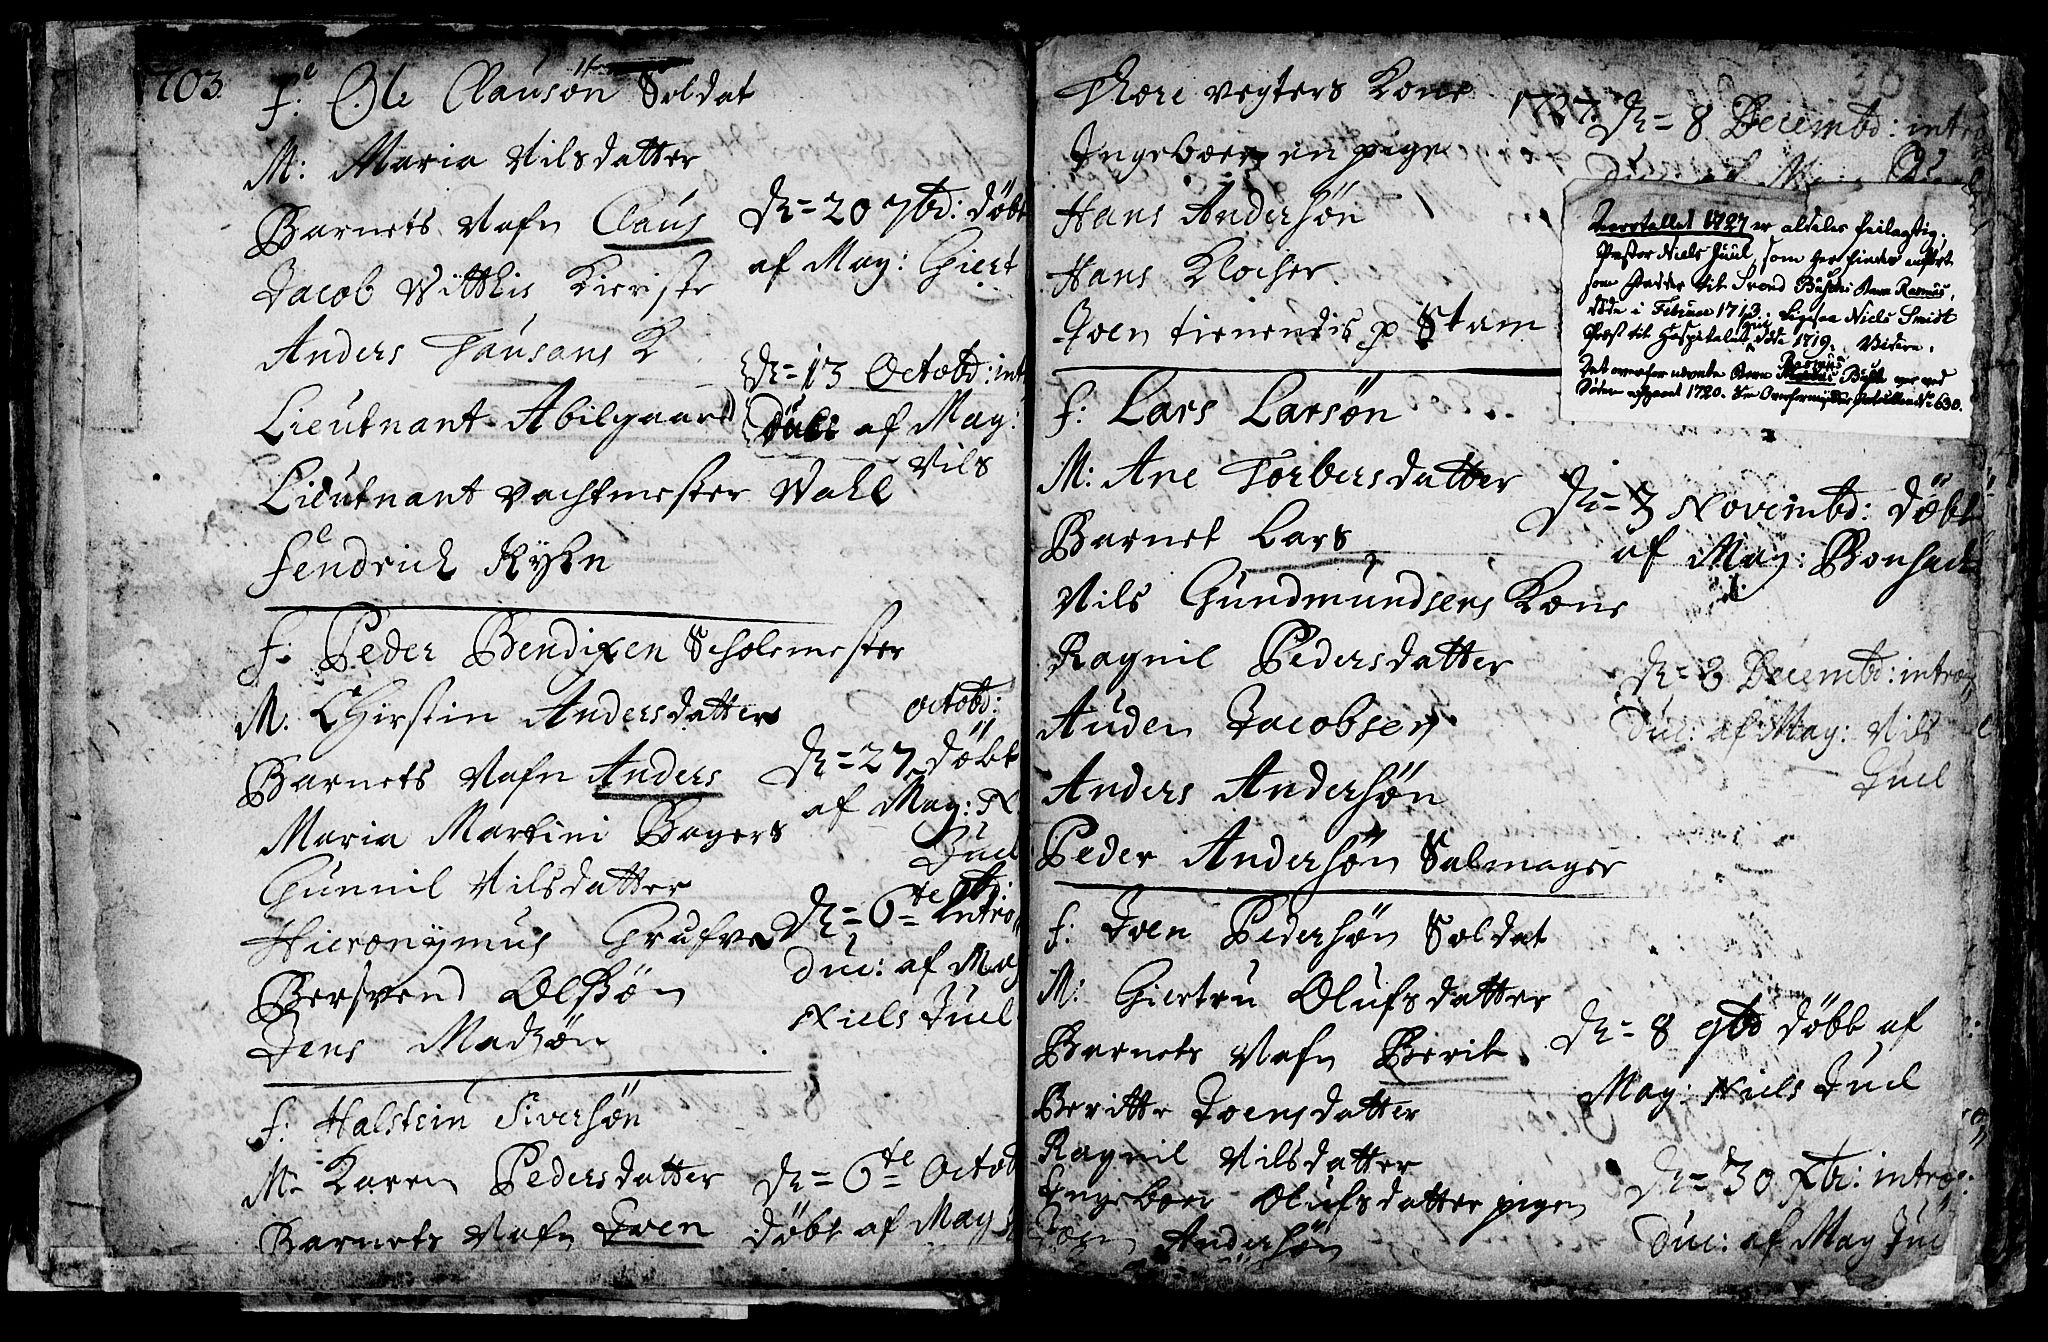 103.
F: Ole Clausøn Soldat
M: Maria Nilsdatter
Barnets Nafn Claus
Jacob Vitthis
Anders Tausans K
Lieutnant Abilgaard
Lieutnant vachtmester Wahl
Fendrich Rysen
D. = 20 7bd: døbt
af Mag: Giert
D. = 13 Octobd: int
Duc: af Mag:
Nils
F: Peder Bendixen Scholemester
M: Chirstin Andersdatter
Barnets Nafn Anders
Maria Martini Bagers
Gunnil Nilsdatter
Hieronymus
Bersvend Olsøn
Jens Madzøn
Octobd:
D. = 27 døbt
af Mag: N
Juel
D. = 6te intro
duc: af Mag
Niels Juel
F: Halstein Siversøn
M. Karen Pedersdatter
Barnets Nafn Even
D. = 6te Octob
døbt af Mag
Thore vegters Kone
Ingeboer en pige
Hans Andersøn
Hans Klocher
Joen tienendis p Stam
1727. D. = 8 Decembd: intro
Aarstallet 1727 er aldeles feilagtig.
Præsten Niels Juul, som her findes anført
som Fadder til Trond Buschs Barn Rasmus,
døde i Februar 1713. Ligesaa Niels Smidt
Præst til Hospitalet, døde 1719. Videre.
Det ovenfor nævnte Barn Rasmus Busk var ved
Søren 1720. Se No 630.
F: Lars Larsøn
M: Ane Torbersdatter
Barnet Lars
Nils Gundmundsens Kone
Ragnil Pedersdatter
Auden Jacobsen
Anders Andersøn
Peder Andersøn Salmager
D. = 3 Novembd: døbt
af Mag: Bonsach
D. = 8 Decembd: intro
duc: af Mag: Nils
Juel
F: Joen Pedersøn Soldat
M: Giertru Olufsdatter
Barnets Nafn Berit
Beritte Joensdatter
Ragnil Nilsdatter
Ingeboer Olufsdatter pigen
Joen Andersøn
D. = 8 9bd døbt af
Mag: Niels Juel
D. = 30 Xbr: intro:
duc: af Mag Juel